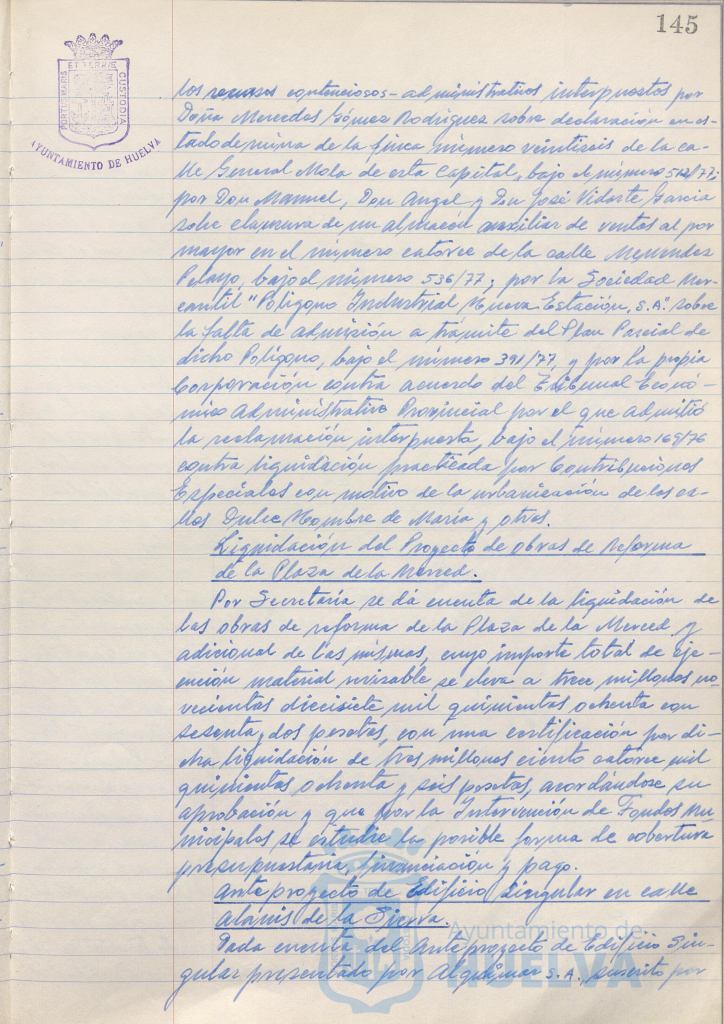 145
PORTUS MARIS
ET TERRAE
CUSTODIA
AYUNTAMIENTO DE HUELVA
los recursos contenciosos-administrativos interpuestos por
Doña Mercedes Gómez Rodríguez sobre declaración en es-
tado de ruina de la finca número veintiseis de la ca-
lle General Mola de esta Capital, bajo el número 512/77;
por Don Manuel, Don Angel y Don José Vidarte García
sobre clausura de un almacén auxiliar de ventas al por
mayor en el número catorce de la calle Menendez
Pelayo, bajo el número 536/77; por la Sociedad Mer-
cantil "Poligono Industrial Nueva Estación, S.A." sobre
la falta de admisión a trámite del Plan Parcial de
dicho Polígono, bajo el número 391/77, y por la propia
Corporación contra acuerdo del Tribunal Econó-
mico Administrativo Provincial por el que admitió
la reclamación interpuesta, bajo el número 169/76
contra liquidación practicada por Contribuciones
Especiales con motivo de la urbanización de las ca-
lles Dulce Nombre de María y otros.
Liquidación del Proyecto de obras de Reforma
de la Plaza de la Merced.
Por Secretaría se dá cuenta de la liquidación de
las obras de reforma de la Plaza de la Merced y
adicional de las mismas, cuyo importe total de eje-
cución material revisable se eleva a trece millones no-
vecientas diecisiete mil quinientas ochenta con
sesenta y dos pesetas, con una certificación por di-
cha liquidación de tres millones ciento catorce mil
quinientas ochenta y seis pesetas, acordándose su
aprobación y que por la Intervención de Fondos Mu-
nicipales se estudie la posible forma de cobertura
presupuestaria, financiación y pago.
Anteproyecto de Edificio Singular en calle
Alanis de la Sierra.
Dada cuenta del Anteproyecto de Edificio Sin-
gular presentado por Alquimar S.A., suscrito por
Ayuntamiento de
HUELVA